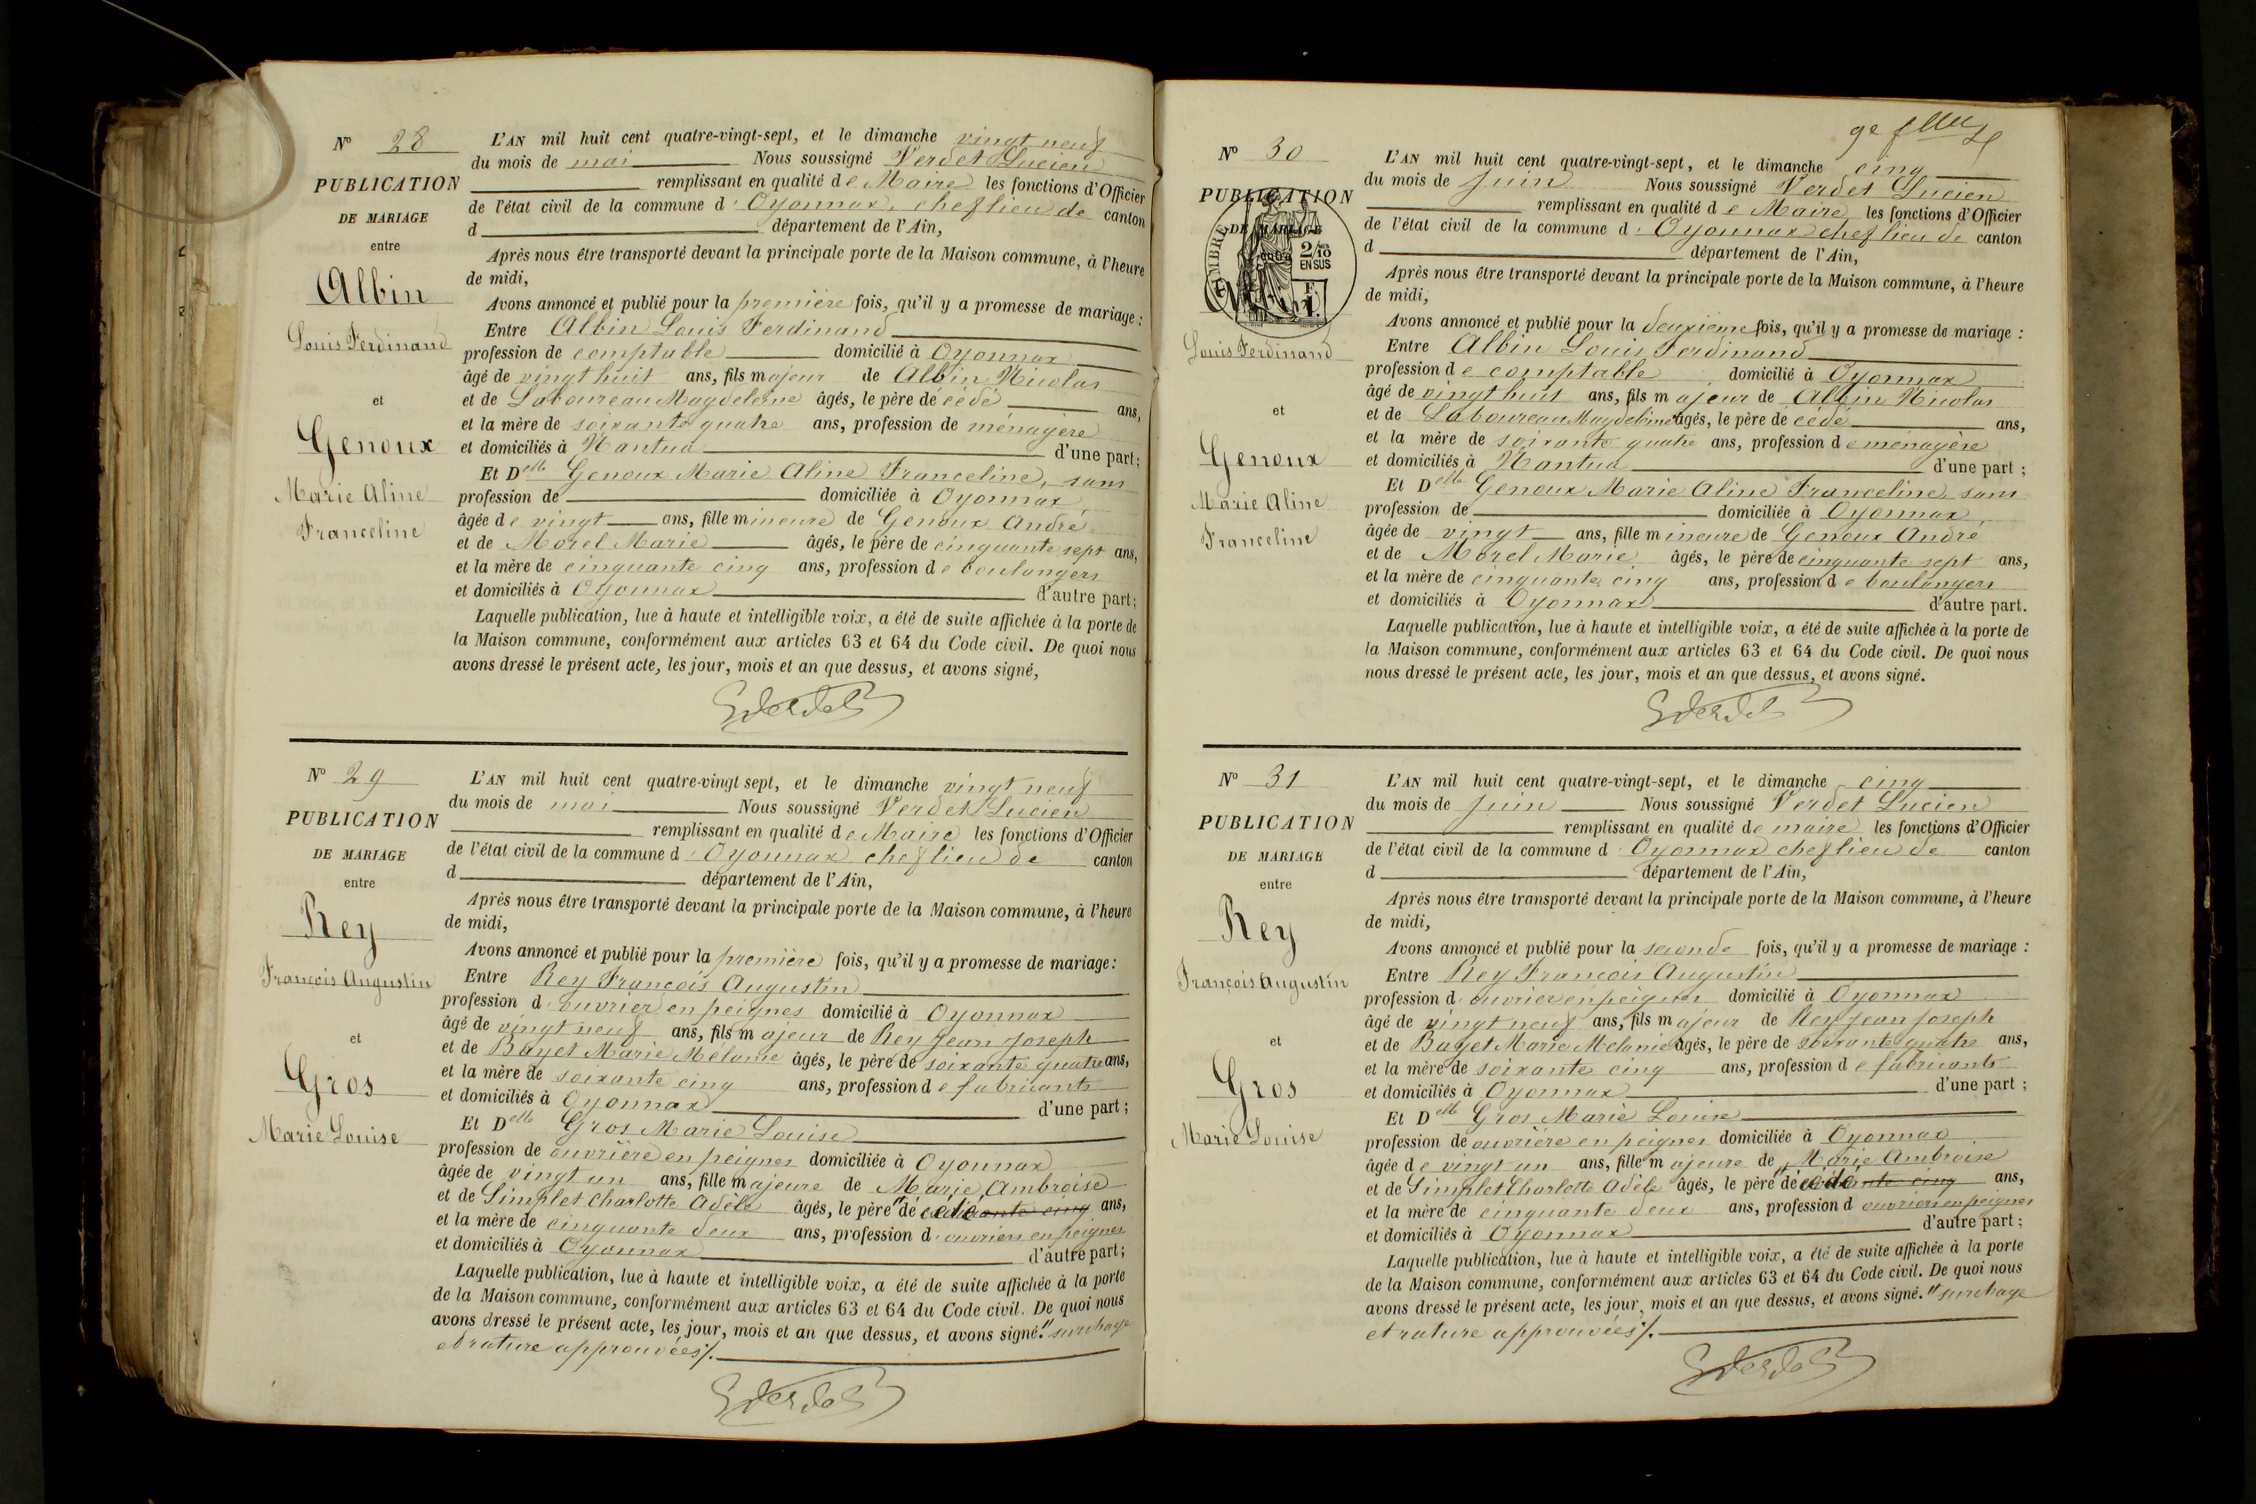 N° 28
PUBLICATION
DE MARIAGE
entre
Albin
Louis Ferdinand
et
Genoux
Marie Aline
Franceline
L'AN mil huit cent quatre-vingt-sept, et le dimanche vingt neuf
du mois de mai Nous soussigné Verdet Lucien
remplissant en qualité de Maire les fonctions d'Officier
de l'état civil de la commune d'Oyonnax, chef lieu de canton
d département de l'Ain,
Après nous être transporté devant la principale porte de la Maison commune, à l'heure
de midi,
Avons annoncé et publié pour la première fois, qu'il y a promesse de mariage :
Entre Albin Louis Ferdinand
profession de comptable domicilié à Oyonnax
âgé de vingt huit ans, fils majeur de Albin Nicolas
et de Laboureau Magdeleine âgés, le père de cédé ans,
et la mère de soixante quatre ans, profession de ménagère
et domiciliés à Nantua d'une part ;
Et Delle Genoux Marie Aline Franceline, sans
profession de domiciliée à Oyonnax
âgée de vingt ans, fille mineure de Genoux André
et de Morel Marie âgés, le père de cinquante sept ans,
et la mère de cinquante cinq ans, profession de boulangers
et domiciliés à Oyonnax d'autre part ;
Laquelle publication, lue à haute et intelligible voix, a été de suite affichée à la porte de
la Maison commune, conformément aux articles 63 et 64 du Code civil. De quoi nous
avons dressé le présent acte, les jour, mois et an que dessus, et avons signé,
N° 29
PUBLICATION
DE MARIAGE
entre
Rey
François Augustin
et
Gros
Marie Louise
L'AN mil huit cent quatre-vingt sept, et le dimanche vingt neuf
du mois de mai Nous soussigné Verdet Lucien
remplissant en qualité de Maire les fonctions d'Officier
de l'état civil de la commune d'Oyonnax chef lieu de canton
d département de l'Ain,
Après nous être transporté devant la principale porte de la Maison commune, à l'heure
de midi,
Avons annoncé et publié pour la première fois, qu'il y a promesse de mariage :
Entre Rey François Augustin
profession d'ouvrier en peignes domicilié à Oyonnax
âgé de vingt neuf ans, fils majeur de Rey Jean Joseph
et de Bayet Marie Mélanie âgés, le père de soixante quatre ans,
et la mère de soixante cinq ans, profession de fabricants
et domiciliés à Oyonnax d'une part ;
Et Delle Gros Marie Louise
profession de ouvrière en peignes domiciliée à Oyonnax
âgée de vingt un ans, fille majeure de Marie Ambroise
et de Simplet Charlotte Adèle âgés, le père "dé cédé ante cinq ans,
et la mère de cinquante deux ans, profession d'ouvriers en peignes
et domiciliés à Oyonnax d'autre part ;
Laquelle publication, lue à haute et intelligible voix, a été de suite affichée à la porte
de la Maison commune, conformément aux articles 63 et 64 du Code civil. De quoi nous
avons dressé le présent acte, les jour, mois et an que dessus, et avons signé." surchage
et rature approuvées/.
N° 30
PUBLICATION
DE MARIAGE
entre
TIMBRE
2/10
EN SUS
Louis Ferdinand
et
Genoux
Marie Aline
Franceline
L'AN mil huit cent quatre-vingt-sept, et le dimanche cinq
du mois de juin Nous soussigné Verdet Lucien
remplissant en qualité de Maire les fonctions d'Officier
de l'état civil de la commune d'Oyonnax chef lieu de canton
d département de l'Ain,
Après nous être transporté devant la principale porte de la Maison commune, à l'heure
de midi,
Avons annoncé et publié pour la deuxième fois, qu'il y a promesse de mariage :
Entre Albin Louis Ferdinand
profession de comptable domicilié à Oyonnax
âgé de vingt huit ans, fils majeur de Albin Nicolas
et de Laboureau Magdeleine âgés, le père dé cédé ans,
et la mère de soixante quatre ans, profession de ménagère
et domiciliés à Nantua d'une part ;
Et Delle Genoux Marie Aline Franceline, sans
profession de domiciliée à Oyonnax
âgée de vingt ans, fille mineure de Genoux André
et de Morel Marie âgés, le père de cinquante sept ans,
et la mère de cinquante cinq ans, profession de boulangers
et domiciliés à Oyonnax d'autre part.
Laquelle publication, lue à haute et intelligible voix, a été de suite affichée à la porte de
la Maison commune, conformément aux articles 63 et 64 du Code civil. De quoi nous
nous dressé le présent acte, les jour, mois et an que dessus, et avons signé.
N° 31
PUBLICATION
DE MARIAGE
entre
Rey
François Augustin
et
Gros
Marie Louise
L'AN mil huit cent quatre-vingt-sept, et le dimanche cinq
du mois de juin Nous soussigné Verdet Lucien
remplissant en qualité de maire les fonctions d'Officier
de l'état civil de la commune d'Oyonnax chef lieu de canton
d département de l'Ain,
Après nous être transporté devant la principale porte de la Maison commune, à l'heure
de midi,
Avons annoncé et publié pour la seconde fois, qu'il y a promesse de mariage :
Entre Rey François Augustin
profession d'ouvrier en peignes domicilié à Oyonnax
âgé de vingt neuf ans, fils majeur de Rey Jean Joseph
et de Bayet Marie Mélanie âgés, le père de soixante quatre ans,
et la mère de soixante cinq ans, profession de fabricants
et domiciliés à Oyonnax d'une part ;
Et Delle Gros Marie Louise
profession de ouvrière en peignes domiciliée à Oyonnax
âgée de vingt un ans, fille majeure de Marie Ambroise
et de Simplet Charlotte Adèle âgés, le père "dé cédé ante cinq ans,
et la mère de cinquante deux ans, profession d'ouvriers en peignes
et domiciliés à Oyonnax d'autre part ;
Laquelle publication, lue à haute et intelligible voix, a été de suite affichée à la porte
de la Maison commune, conformément aux articles 63 et 64 du Code civil. De quoi nous
avons dressé le présent acte, les jour, mois et an que dessus, et avons signé." surchage
et rature approuvées/.